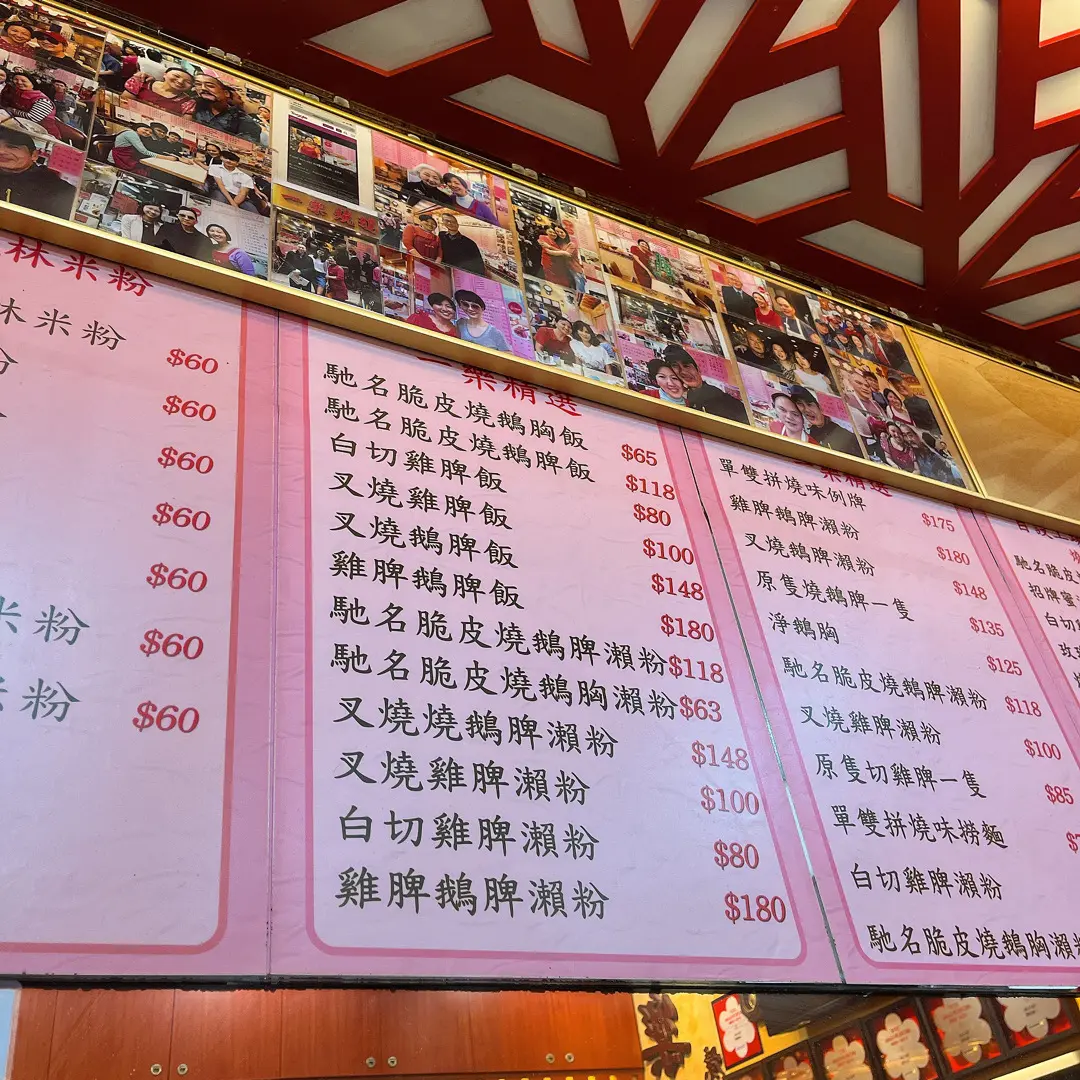 林米粉
林米粉 $60
$60
$60
$60
$60
米粉 $60
米粉 $60
一樂燒鵝
一樂精選
馳名脆皮燒鵝胸飯 $65
馳名脆皮燒鵝脾飯 $118
白切雞脾飯 $80
叉燒雞脾飯 $100
叉燒鵝脾飯 $148
雞脾鵝脾飯 $180
馳名脆皮燒鵝脾瀨粉 $118
馳名脆皮燒鵝胸瀨粉 $63
叉燒燒鵝脾瀨粉 $148
叉燒雞脾瀨粉 $100
白切雞脾瀨粉 $80
雞脾鵝脾瀨粉 $180
一樂精選
單雙拼燒味例牌 $175
雞脾鵝脾瀨粉 $180
叉燒鵝脾瀨粉 $148
原隻燒鵝脾一隻 $135
淨鵝胸 $125
馳名脆皮燒鵝脾瀨粉 $118
叉燒雞脾瀨粉 $100
原隻切雞脾一隻 $85
單雙拼燒味撈麵
白切雞脾瀨粉
馳名脆皮燒鵝胸瀨
馳名脆皮
招牌蜜
白切
樂